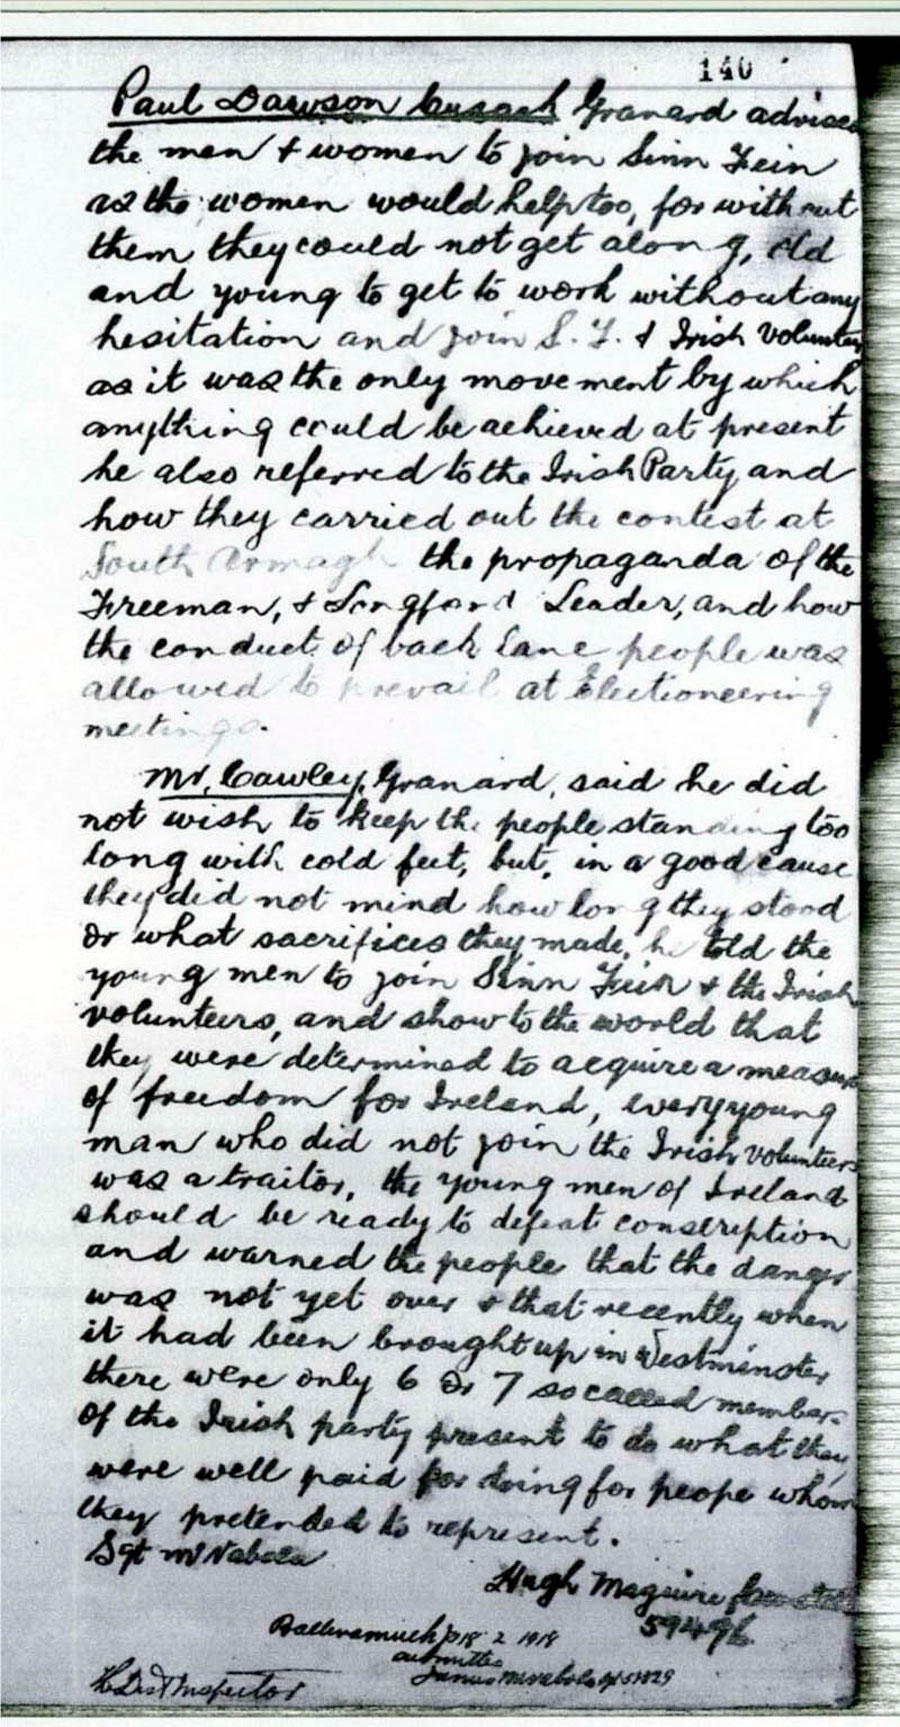 140
Paul Dawson Cusack Granard advised
the men & women to join Sinn Fein
as the women would help too, for without
them they could not get along, old
and young to get to work without any
hesitation and join S. F. & Irish Volunteers
as it was the only movement by which
anything could be achieved at present
he also referred to the Irish Party and
how they carried out the contest at
South Armagh the propaganda of the
Freeman, & Longford Leader, and how
the conduct of back lane people was
allowed to prevail at Electioneering
meetings.
Mr. Cawley, Granard, said he did
not wish to keep the people standing too
long with cold feet, but, in a good cause
they did not mind how long they stood
or what sacrifices they made, he told the
young men to join Sinn Fein & the Irish
volunteers, and show to the world that
they were determined to acquire a measure
of freedom for Ireland, every young
man who did not join the Irish volunteers
was a traitor, the young men of Ireland
should be ready to defeat conscription
and warned the people that the danger
was not yet over & that recently when
it had been brought up in Westminster
there were only 6 or 7 so called members
of the Irish party present to do what they
were well paid for doing for peope whom
they pretended to represent.
Sgt McNabola
Hugh Maguire
59496
Ballinamuck 18 2 1918
submitted
James McNabola Sgt 51829
Dist Inspector